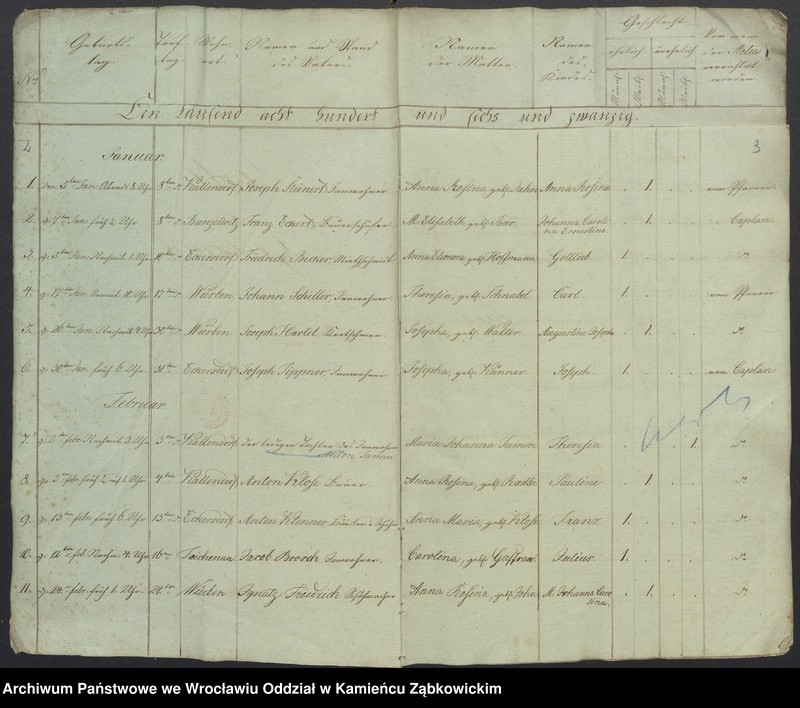 No
Geburts-
tag.
Tauf-
tag.
Wohn-
ort.
Namen und Stand
des Vaters.
Namen
der Mutter.
Namen
des
Kindes.
Geschlecht
ehelich unehelich
Männl. Weibl. Männl. Weibl.
Von wem
der Actus
verrichtet
worden.
Ein tausend acht hundert und sechs und zwanzig.
3
Januar
1. Jan. Abends 8 Uhr 8ten Kallendorf Joseph Steinert, Inwohner Anna Rosina, geb. Jahn Anna Rosina 1. vom Pfarrer
2. 7ten Jan. früh Uhr 8ten Bunzelwitz Franz Eckert, M. Elisabeth, geb. Johanna Caroli-
na Ernestine 1. Caplan
3. Jan. Nachmit. 1. Uhr 10ten Eckersdorf Friedrich Becker, Anna Eleonora, geb. Hoffmann Gottlieb 1. do
4. 17ten Jan. Uhr 17ten Würben Johann Schiller, Inwohner Theresia, geb. Schnabel Carl 1. vom Pfarrer
5. 26ten Jan. Nachmit. 4. Uhr 30ten Würben Joseph Hartel, Josepha, geb. Walter Augustine Josepha 1. do
6. 30ten Jan. früh 6. Uhr 31ten Eckersdorf Joseph Tippner, Inwohner Josepha, geb. Joseph 1. vom Caplan
Februar
7. Febr. Nachmit. 2. Uhr 3ten Kallendorf der ledigen Tochter des Inwohner
Anton Tamm Maria Johanna Tamm Theresia 1. do
8. 3ten Febr. früh Uhr 4ten Kallendorf Anton Klose, Bauer Anna Rosina, geb. Pauline 1. do
9. 13ten Febr. früh 6. Uhr 13ten Eckersdorf Anton Klenner, Anna Maria, geb. Klose Franz 1. do
10. 12ten Feb. Nachm. 4. Uhr 16ten Teichenau Jacob Brosch, Inwohner Carolina, geb. Julius 1. do
11. 24ten Febr. früh 1. Uhr 24ten Würben Ignatz Friedrich, Schuhmacher Anna Rosina, geb. John M. Johanna Caro-
lina 1. do
Archiwum Państwowe we Wrocławiu Oddział w Kamieńcu Ząbkowickim